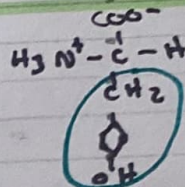 COO-
H3N+-C-H
CH2
OH